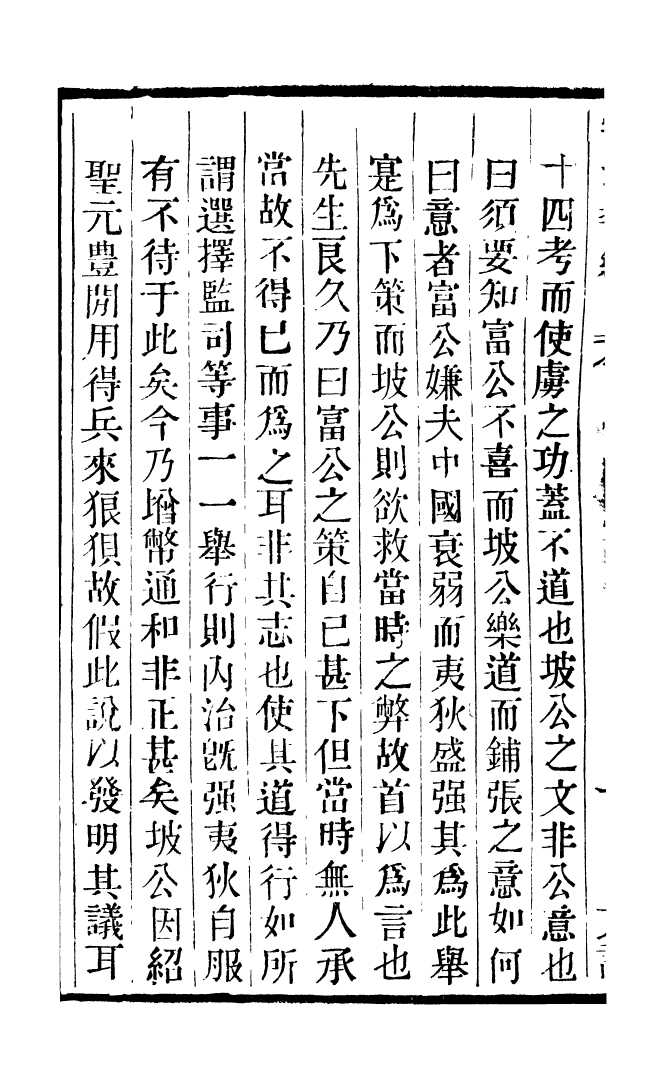 十四考而使虜之功蓋不道也坡公之文非公意也
曰須要知富公不喜而坡公樂道而鋪張之意如何
曰意者富公嫌夫中國衰弱而夷狄盛强其爲此舉
寔爲下策而坡公則欲救當時之弊故首以爲言也
先生良久乃曰富公之策自已甚下但當時無人承
當故不得已而爲之耳非其志也使其道得行如所
謂選擇監司等事一一舉行則內治旣强夷狄自服
有不待于此矣今乃增幣通和非正甚矣坡公因紹
聖元豊間用得兵來狼狽故假此說以發明其議耳